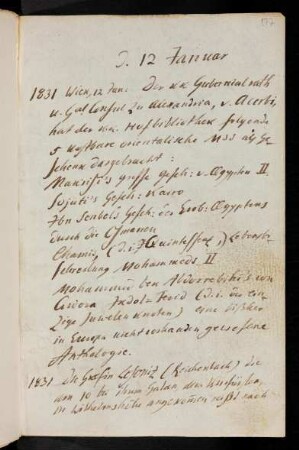 d. 12 Januar
1831 Wien, 12 Jan. Der kk Gubernialrath
u. Gal Consul zu Alexandria, v. Acerbi,
hat der kk. Hofbibliothek folgende
5 kostbare orientalische Mss als Ge
schenk dargebracht:
Makrisi's große Gesch: v. Ægypten II.
Sojuti's Gesch: Kairo
Ibn Senbels Gesch: der Erob: Ægyptens
durch die Osmanen
Chamis, (d. i. Quintessenz) Lebensb=
schreibung Mohammeds II
Mohammed ben Abdorrebbihi's von
Ikdol-Ferid (d. i. die ein=
zige Juwelenknoten) eine bisher
in Europa nicht vorhanden gewesene
Anthologie.
1831. Die Gräfin (Reichenbach) die
den 10 bei ihrem Gatten, dem
in Wilhelmshöhe angekommen reißt nach